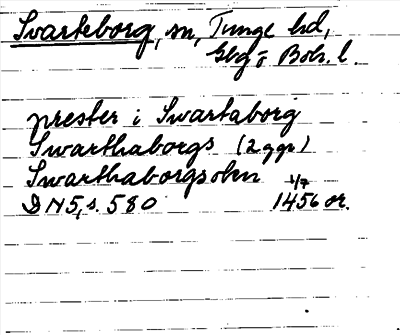 Svarteborg, sn, Tunge hd,
Gbg o Boh. l.
prester i Swartaborg
Swarthaborgs (2 ggr)
Swarthaborgsokn
1/7
DN 5, s. 580 1456 or.